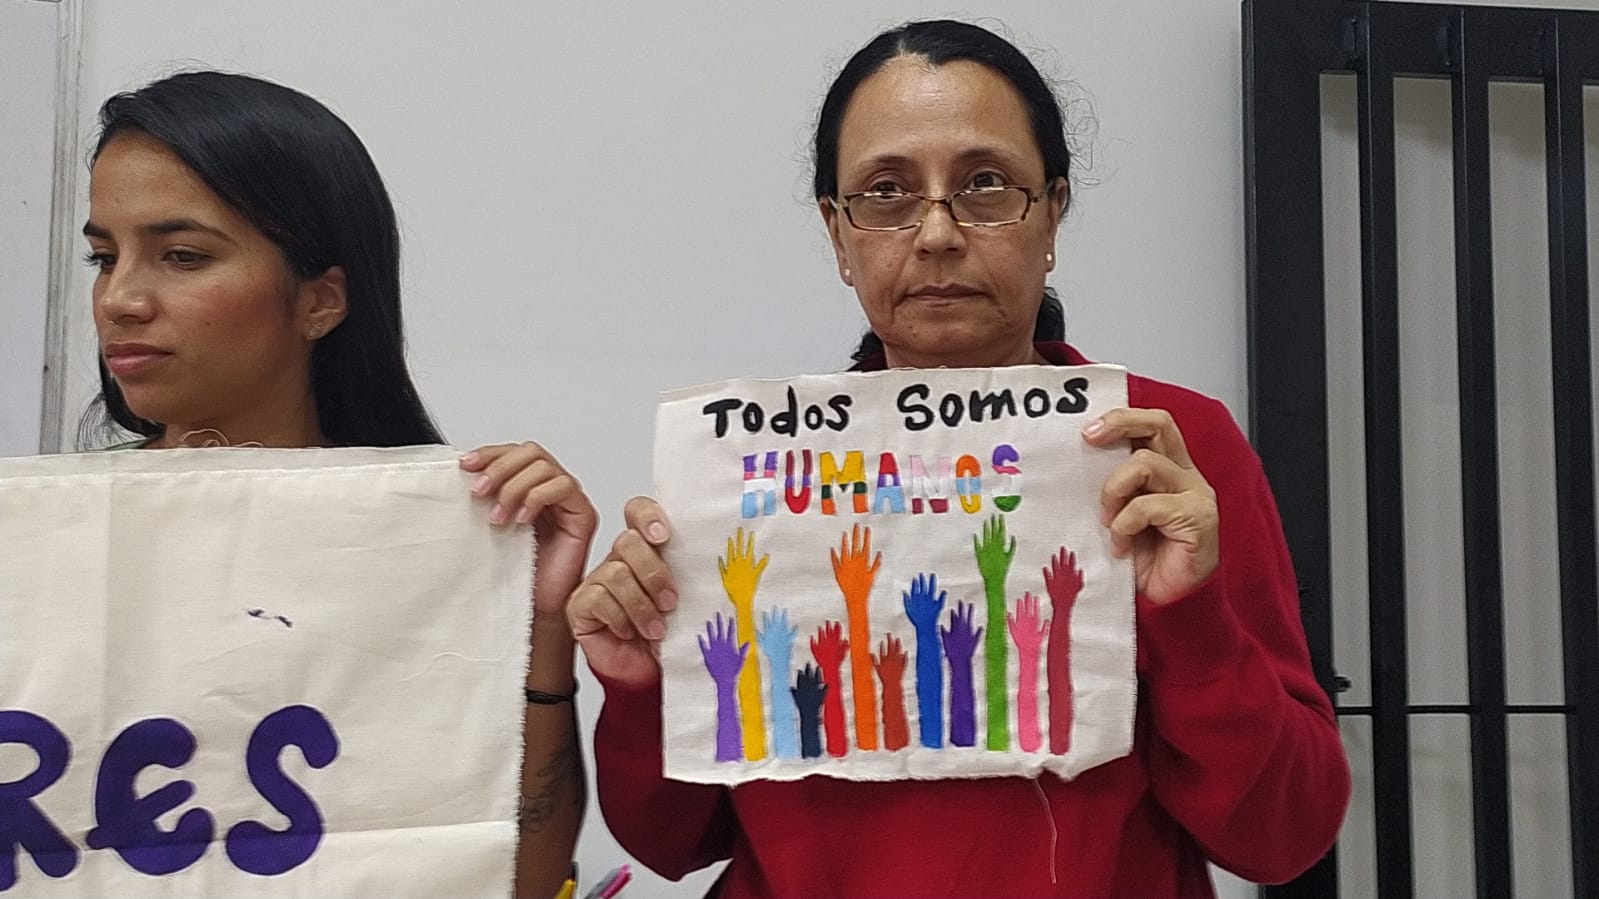 Todos Somos
HUMANOS
RES